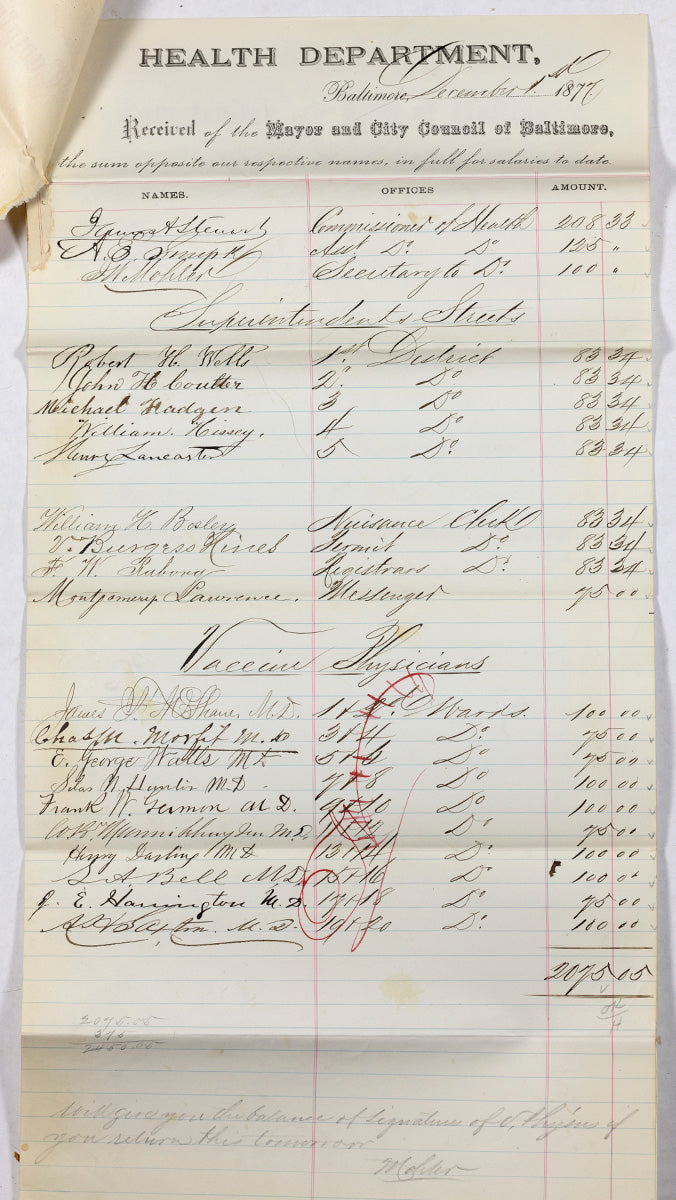 HEALTH DEPARTMENT,
Baltimore, December 1st 1877
Received of the Mayor and City Council of Baltimore,
the sum opposite our respective names, in full for salaries to date.
NAMES. OFFICES AMOUNT.
James A Steuart Commissioner of Health 208 33
A. E. Asst Do. Do 125 "
Mohler Secretary to Do. 100 "
Superintendents Streets
Robert H. Wells 1st. District 83 34
John H Coulter 2" Do 83 34
Michael Hadgen 3 Do 83 34
William. Hissey. 4 Do. 83 34
Henry Lancaster 5 Do. 83 34
William H Bosley Nuisance Clerk 83 34
V. Burgess Hines Permit Do. 83 34
F. W. Raborg Registrars Do. 83 34
Montgomery Lawrence. Messenger 75 00
Vaccine Physicians
James P. McShane, M.D. 1 + 2d Wards. 100 00
Chas M. Morfit M D 3 + 4 Do. 75 00
E. George Walls M D 5 + 6 Do 75 00
Silas M. D. 7 + 8 Do 100 00
Frank W. Germon M D. 9 + 10 Do 100 00
Munnikhuysen M.D. 11 + 12 Do 75 00
Henry Darling M D 13 + 14 Do. 100 00
S A Bell M.D. 15 + 16 Do. 100 00
J. E. Harrington M. D 17 + 18 Do. 75 00
M. D. 19 + 20 Do. 100 00
2075 05
OK
H
2075.05
375
2450.05
Will give you the balance of signature of V. Phys'ns if
you return this tomorrow
Mohler